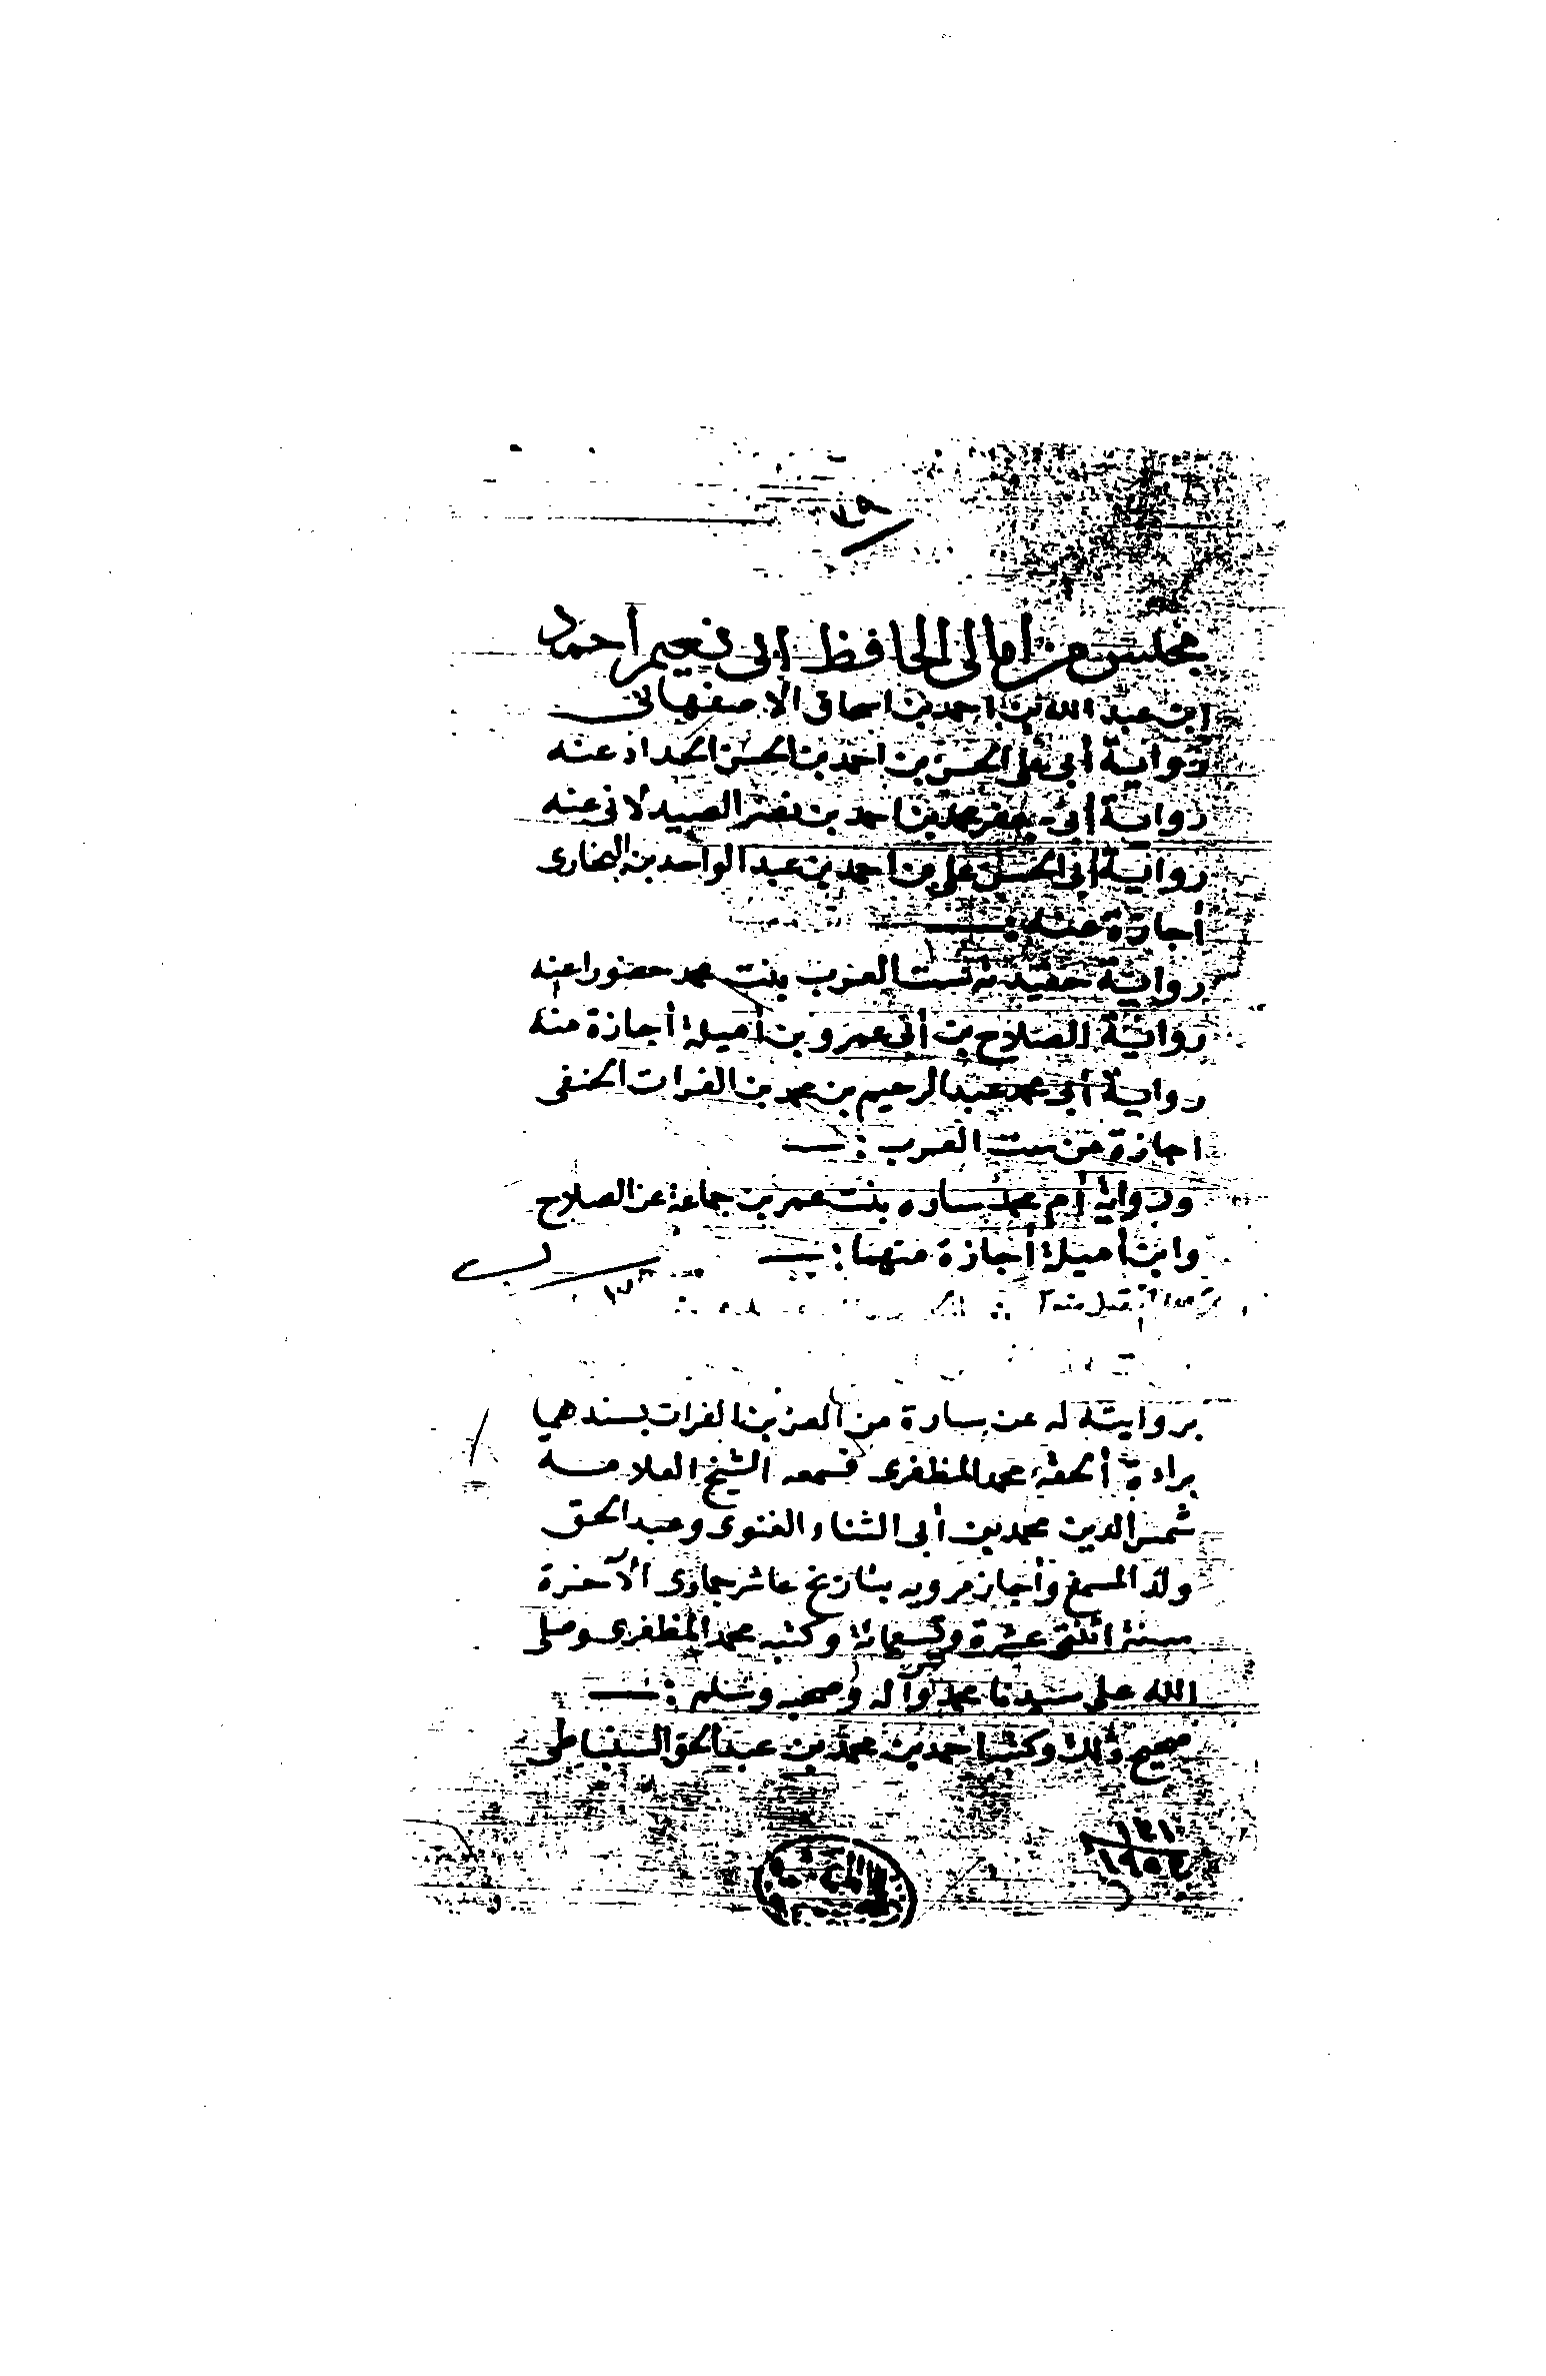 ٦٩
مجلس من أمالى الحافظ ابى نعيم أحمد
ابن عبد الله بن احمد بن اسحاق الاصفهانى
رواية أبى على الحسن بن احمد بن الحسن الحداد عنه
رواية أبى جعفر محمد بن احمد بن نصر الصيدلانى عنه
رواية أبى الحسن على بن احمد بن عبد الواحد بن البخارى
أجازة عنه :
رواية حفيدته ست العرب بنت محمد حضورا عنه
رواية الصلاح بن أبى عمر و بن أميلة أجازة منه
رواية أبى محمد عبد الرحيم بن محمد بن الفرات الحنفى
اجازة من ست العرب :
ورواية أم محمد ساره بنت عمر بن جماعة عن الصلاح
وابن أميلة أجازة منهما :
بروايته له عن سارة من العز بن الفرات بسندهما
محمد المظفرى فسمعه الشيخ العلامة
شمس الدين محمد بن أبى الثناء الغنوى وعبد الحق
ولد المسمع وأجاز مرويه بتاريخ عاشر جمادى الآخرة
سنة اثنتى عشرة وتسعمائة وكتبه محمد المظفرى وصلى
الله على سيدنا محمد وآله وصحبه وسلم :
صحيح ذلك وكتب احمد بن محمد بن عبد الحق السنباطى